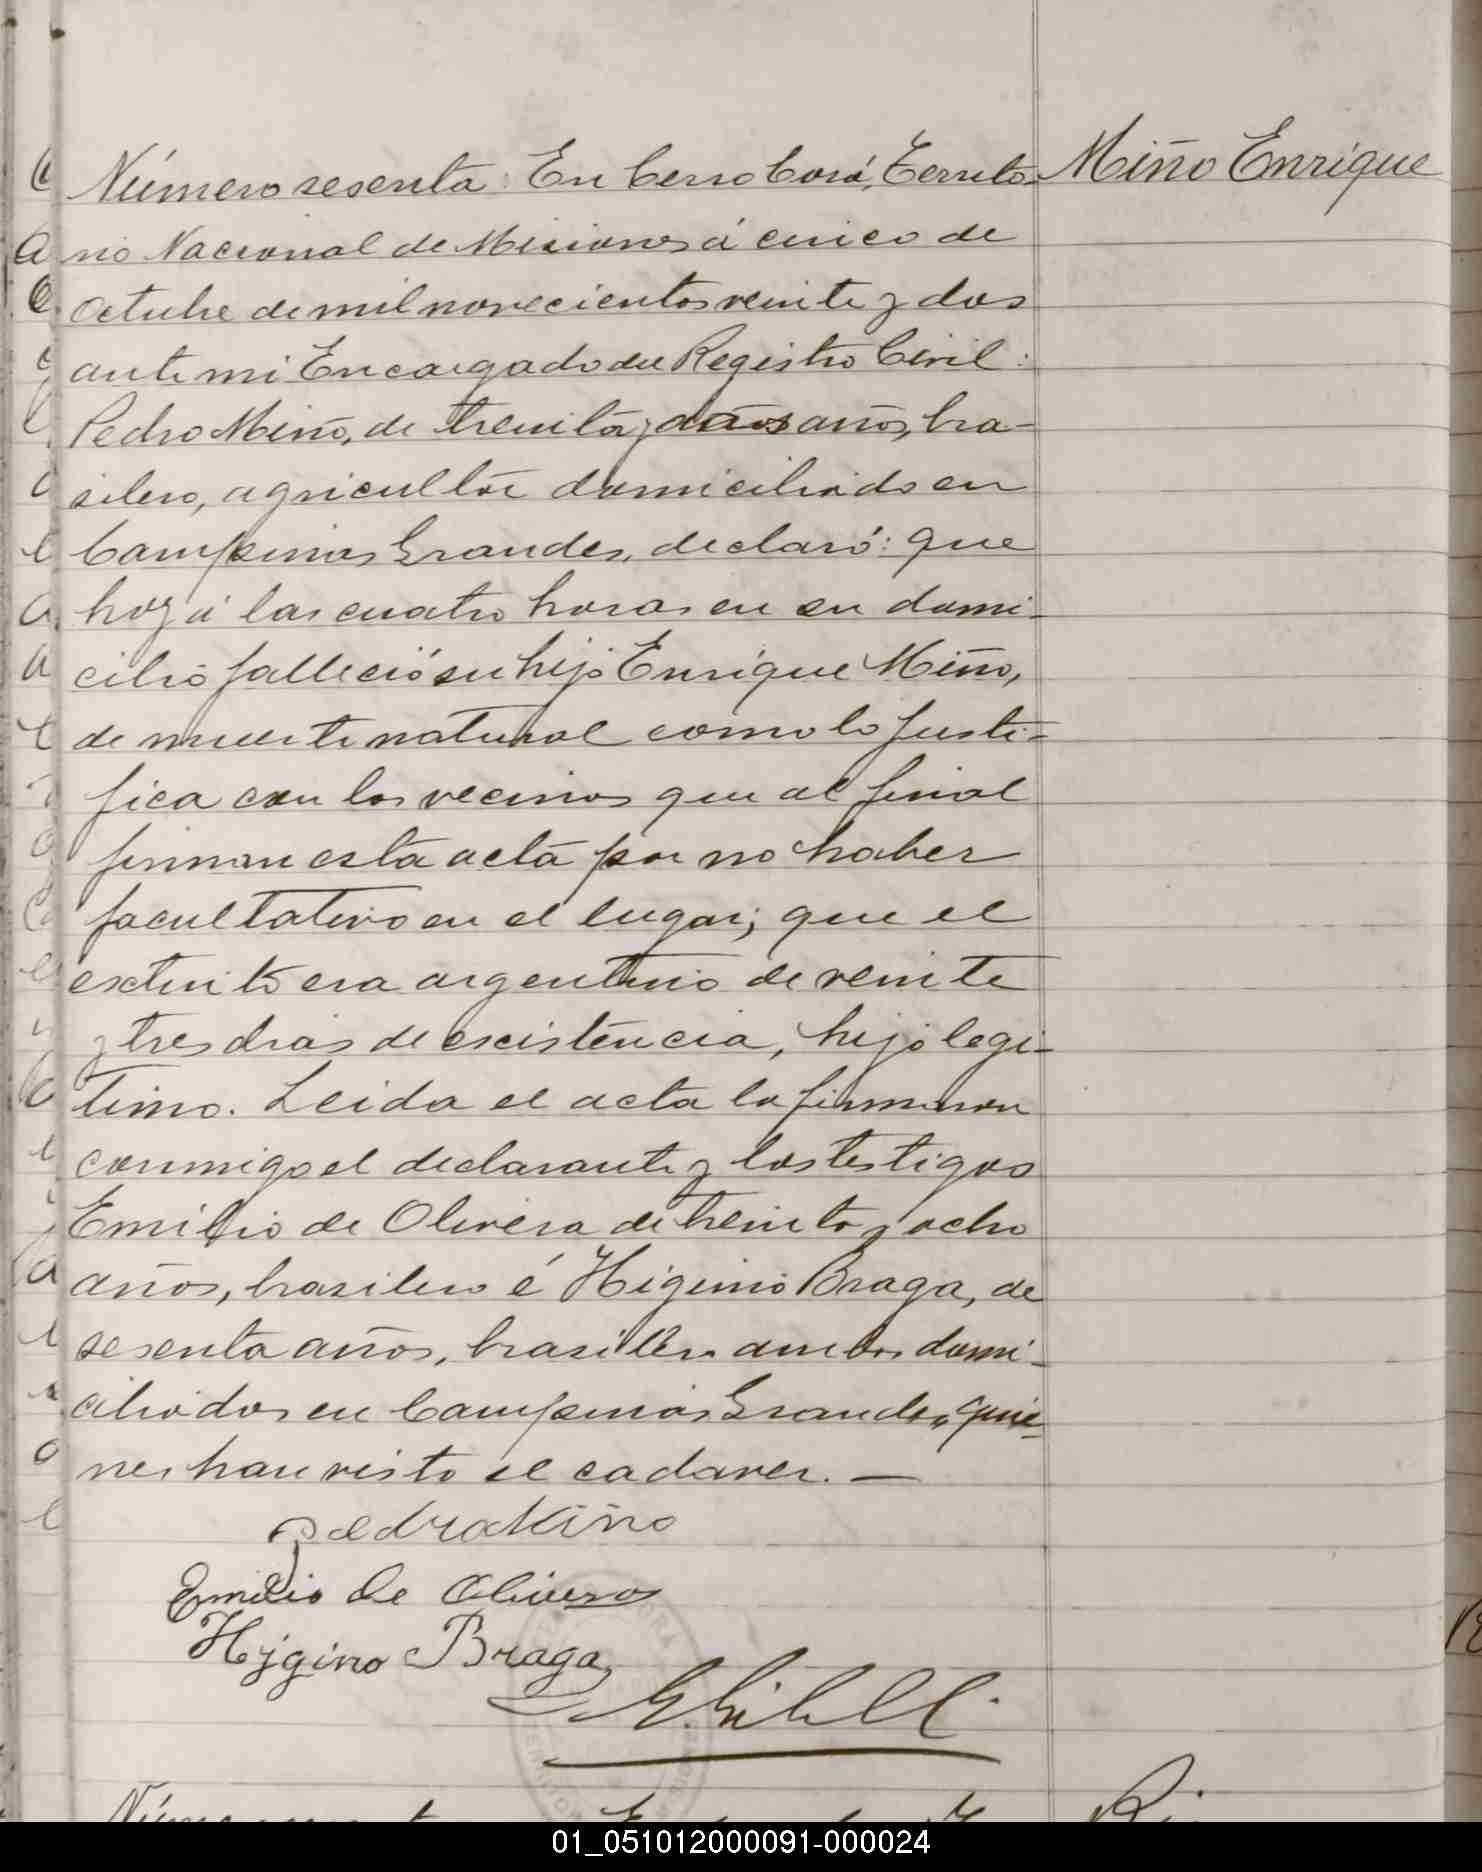 Número sesenta: En Cerro Corá, Territo-
Miño Enrique
rio Nacional de Misiones á cinco de
Octubre de mil novecientos veinte y dos
ante mi Encargado del Registro Civil:
Pedro Miño, de treinta y dos años, bra-
silero, agricultor domiciliado en
Campinas Grandes, declaró: que
hoy á las cuatro horas en su domi-
cilio falleció su hijo Enrique Miño,
de muerte natural como lo justi-
fica con los vecinos que al final
firman esta acta por no haber
facultativo en el lugar; que el
extinto era argentino de veinte
y tres dias de existencia, hijo legi-
timo. Leida el acta la firmaron
conmigo el declarante y los testigos
Emilio de Olivera de treinta y ocho
años, brasilero é Higinio Braga, de
sesenta años, brasilero ambos domi-
ciliados en Campinas Grandes, quie-
nes han visto el cadaver. —
Pedro Miño
Emilio de Olivera
Hygino Braga
01_051012000091-000024